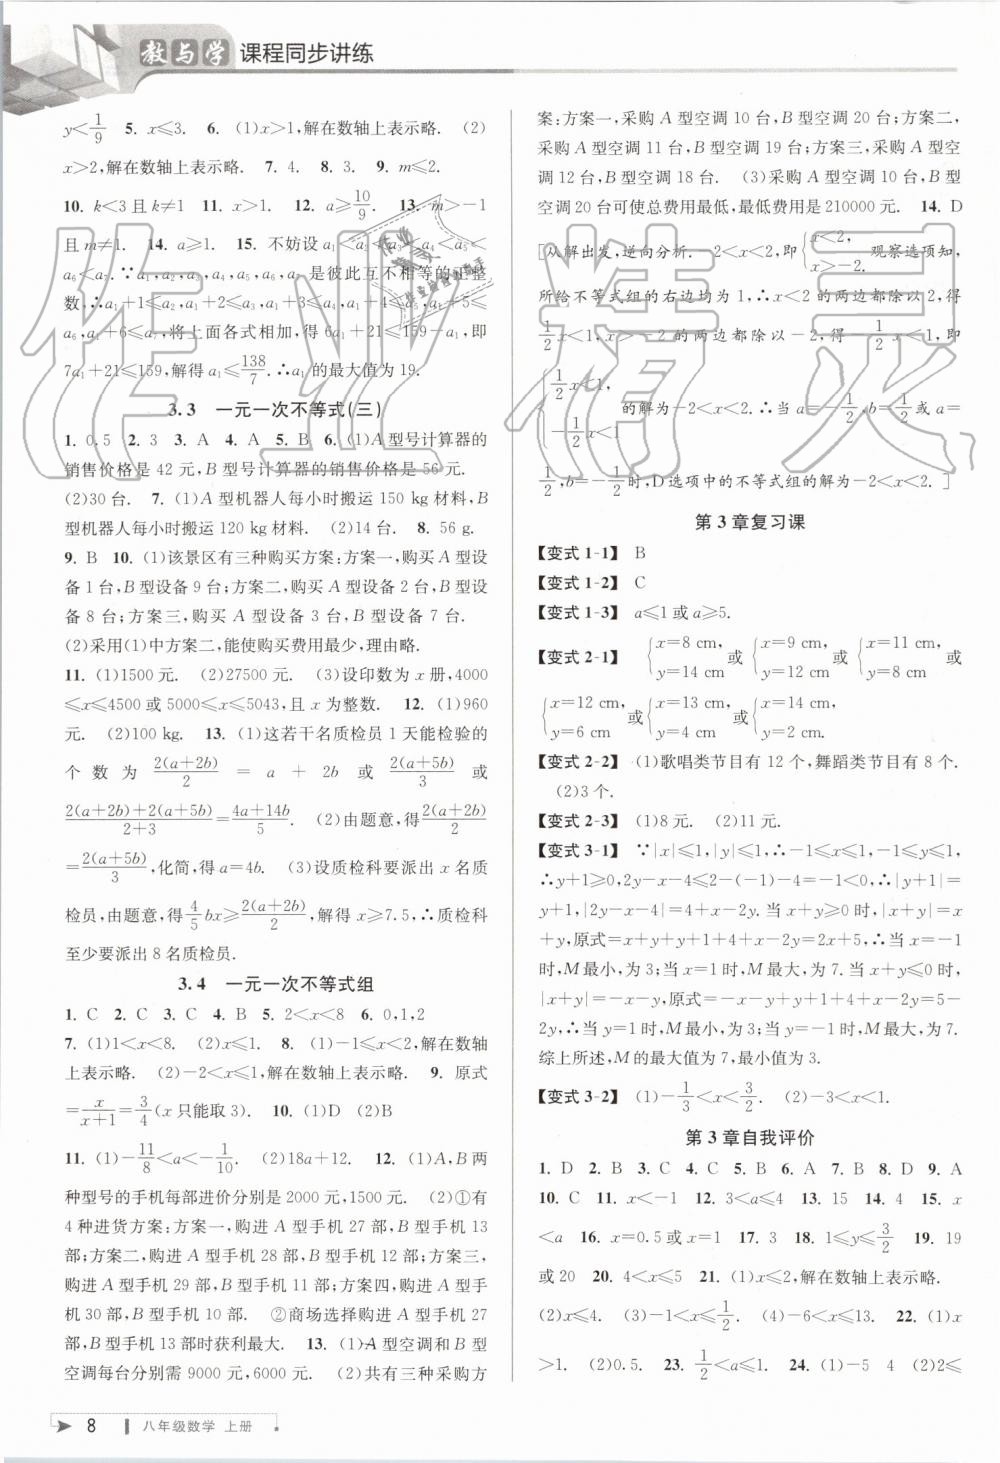 教与学 课程同步讲练
y<1/9 5. x≤3. 6. (1)x>1,解在数轴上表示略. (2)
x>2,解在数轴上表示略. 7. 4. 8. 3. 9. m≤2.
10. k<3且k≠1 11. x>1. 12. a≥10/9. 13. m>-1
且m≠1. 14. a>1. 15. 不妨设a₁<a₂<a₃<a₄<a₅<
a₆<a₇.∵a₁,a₂,a₃,a₄,a₅,a₆,a₇是彼此互不相等的正整
数,∴a₁+1≤a₂,a₁+2≤a₃,a₁+3≤a₄,a₁+4≤a₅,a₁+5≤
a₆,a₁+6≤a₇,将上面各式相加,得6a₁+21≤159-a₁,即
7a₁+21≤159,解得a₁≤138/7.∴a₁的最大值为19.
3.3 一元一次不等式(三)
1. 0.5 2. 3 3. A 4. A 5. B 6. (1)A型号计算器的
销售价格是42元,B型号计算器的销售价格是56元.
(2)30台. 7. (1)A型机器人每小时搬运150 kg材料,B
型机器人每小时搬运120 kg材料. (2)14台. 8. 56 g.
9. B 10. (1)该景区有三种购买方案:方案一,购买A型设
备1台,B型设备9台;方案二,购买A型设备2台,B型设
备8台;方案三,购买A型设备3台,B型设备7台.
(2)采用(1)中方案二,能使购买费用最少,理由略.
11. (1)1500元. (2)27500元. (3)设印数为x册,4000
≤x≤4500或5000≤x≤5043,且x为整数. 12. (1)960
元. (2)100 kg. 13. (1)这若干名质检员1天能检验的
个数为2(a+2b)/2=a+2b或2(a+5b)/3或
2(a+2b)+2(a+5b)/2+3=4a+14b/5. (2)由题意,得2(a+2b)/2
=2(a+5b)/3,化简,得a=4b. (3)设质检科要派出x名质
检员,由题意,得4/5bx≥2(a+2b)/2,解得x≥7.5,∴质检科
至少要派出8名质检员.
3.4 一元一次不等式组
1. C 2. C 3. C 4. B 5. 2<x<8 6. 0,1,2
7. (1)1<x<8. (2)x≤1. 8. (1)-1≤x<2,解在数轴
上表示略. (2)-2<x≤1,解在数轴上表示略. 9. 原式
=x/x+1=3/4(x只能取3). 10. (1)D (2)B
11. (1)-11/8<a<-1/10. (2)18a+12. 12. (1)A,B两
种型号的手机每部进价分别是2000元,1500元. (2)①有
4种进货方案:方案一,购进A型手机27部,B型手机13
部;方案二,购进A型手机28部,B型手机12部;方案三,
购进A型手机29部,B型手机11部;方案四,购进A型手
机30部,B型手机10部. ②商场选择购进A型手机27
部,B型手机13部时获利最大. 13. (1)A型空调和B型
空调每台分别需9000元,6000元. (2)共有三种采购方
案:方案一,采购A型空调10台,B型空调20台;方案二,
采购A型空调11台,B型空调19台;方案三,采购A型空
调12台,B型空调18台. (3)采购A型空调10台,B型
空调20台可使总费用最低,最低费用是210000元. 14. D
[从解出发,逆向分析.-2<x<2,即{x<2, x>-2. 观察选项知,
所给不等式组的右边均为1,∴x<2的两边都除以2,得
1/2x<1,x>-2的两边都除以-2,得-1/2x<1,即
{1/2x<1, -1/2x<1 的解为-2<x<2.∴当a=-1/2,b=1/2或a=
1/2,b=-1/2时,D选项中的不等式组的解为-2<x<2.]
第3章复习课
【变式1-1】 B
【变式1-2】 C
【变式1-3】 a≤1或a≥5.
【变式2-1】 {x=8 cm, y=14 cm或{x=9 cm, y=12 cm或{x=11 cm, y=8 cm或
{x=12 cm, y=6 cm或{x=13 cm, y=4 cm或{x=14 cm, y=2 cm.
【变式2-2】 (1)歌唱类节目有12个,舞蹈类节目有8个.
(2)3个.
【变式2-3】 (1)8元. (2)11元.
【变式3-1】 ∵|x|≤1,|y|≤1,∴-1≤x≤1,-1≤y≤1,
∴y+1≥0,2y-x-4≤2-(-1)-4=-1<0,∴|y+1|=
y+1,|2y-x-4|=4+x-2y.当x+y≥0时,|x+y|=x
+y,原式=x+y+y+1+4+x-2y=2x+5,∴当x=-1
时,M最小,为3;当x=1时,M最大,为7.当x+y≤0时,
|x+y|=-x-y,原式=-x-y+y+1+4+x-2y=5-
2y,∴当y=1时,M最小,为3;当y=-1时,M最大,为7.
综上所述,M的最大值为7,最小值为3.
【变式3-2】 (1)-1/3<x<3/2. (2)-3<x<1.
第3章自我评价
1. D 2. B 3. B 4. C 5. B 6. B 7. B 8. D 9. A
10. C 11. x<-1 12. 3<a≤4 13. 15 14. 4 15. x
<a 16. x=0.5或x=1 17. 3 18. 1≤y≤3/2 19. 19
或20 20. 4<x≤5 21. (1)x≤2,解在数轴上表示略.
(2)x≤4. (3)-1<x≤1/2. (4)-6<x≤13. 22. (1)x
>1. (2)0.5. 23. 1/2<a≤1. 24. (1)-5 4 (2)2≤
8 八年级数学 上册
作业精灵